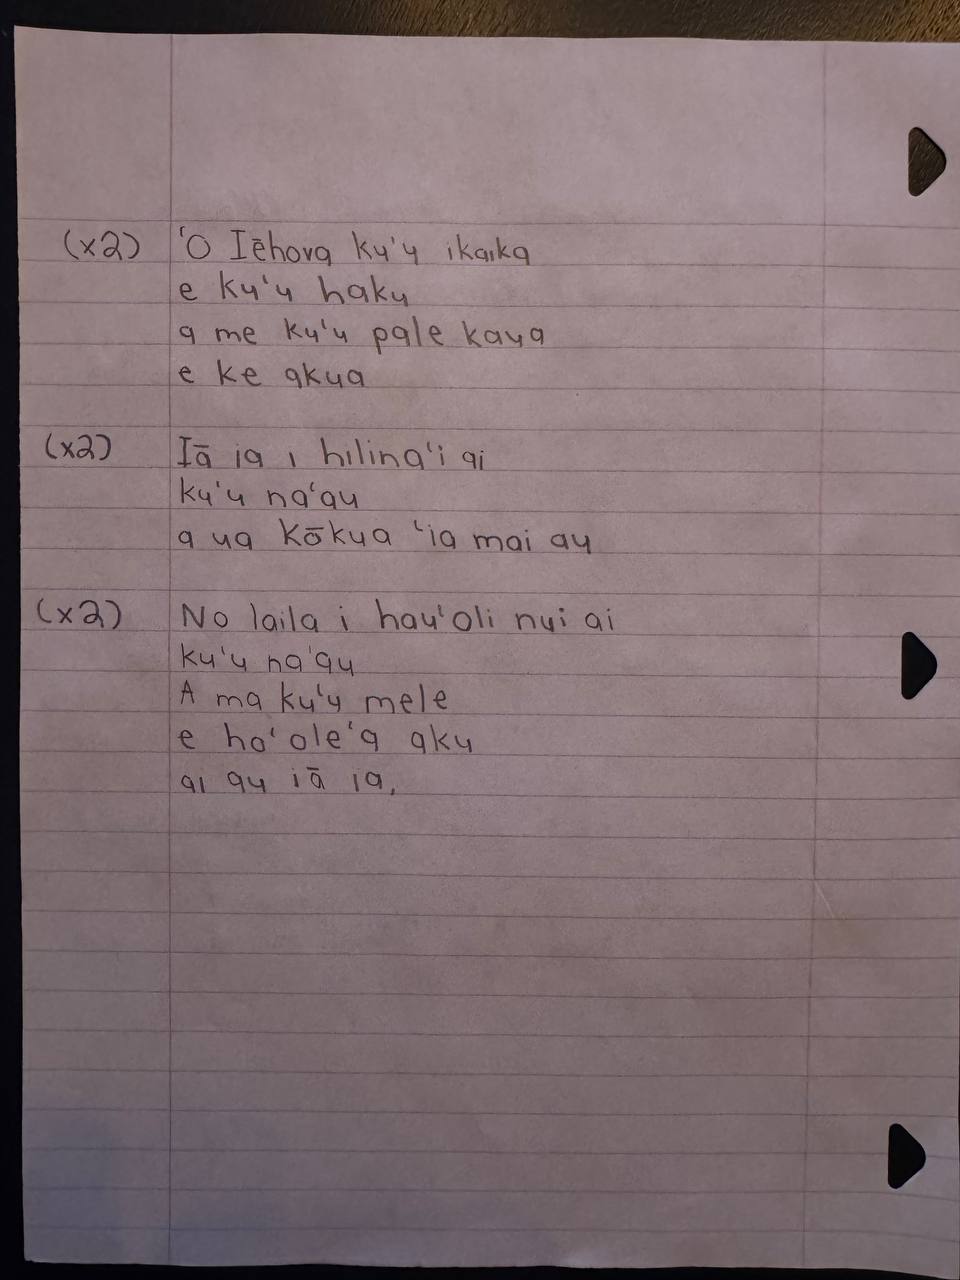 (x2) 'O Iēhova ku'u ikaika
e ku'u haku
a me ku'u pale kaua
e ke akua
(x2) Iā ia i hilina'i ai
ku'u na'au
a ua kōkua 'ia mai au
(x2) No laila i hau'oli nui ai
ku'u na'au
A ma ku'u mele
e ho'ole'a aku
ai au iā ia.